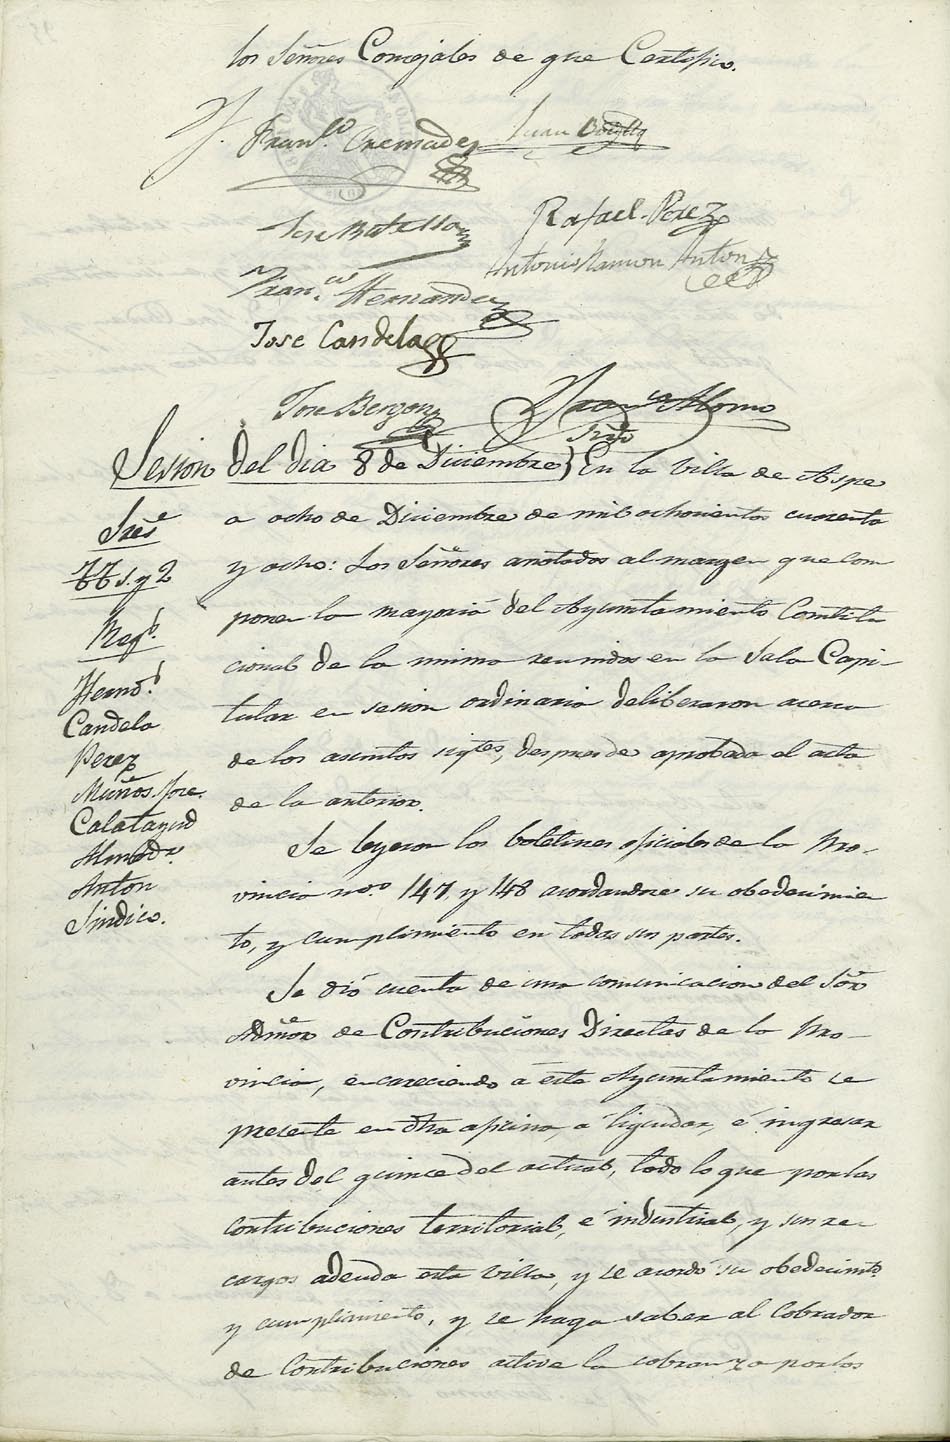 los Señores Concejales de que Certifico.
Fran.co Cremades
Juan
José Botella
Rafael Perez
Antonio Ramon Anton
Fran.co Hernandez
Jose Candela
Jose Bergon
Fran.co Alonso
Srio
Sesion del dia 8 de Diciembre} En la Villa de Aspe
a ocho de Diciembre de mil ochocientos cuarenta
y ocho: Los Señores anotados al margen que com
ponen la mayoria del Ayuntamiento Constitu
cional de la misma reunidos en la Sala Capi-
tular en sesion ordinaria deliberaron acerca
de los asuntos sigtes, despues de aprobada el acta
de la anterior.
Sres
TT 1. y 2
Reg.s
Hernz.
Candela
Perez
Muños Jose.
Calatayud
Almodr.
Anton
Sindico.
Se leyeron los boletines oficiales de la Pro-
vincia nros 147 y 148 acordandose su obedecimien
to, y cumplimiento en todas sus partes.
Se dió cuenta de una comunicacion del Sor
Admor de Contribuciones Directas de la Pro-
vincia, encareciendo á este Ayuntamiento se
presente en dha oficina, á liquidar, é ingresar
antes del quince del actual, todo lo que por las
contribuciones territorial, é industrial, y sus re-
cargos adeuda esta Villa, y se acordó su obedecimto
y cumplimiento, y se haga saber al Cobrador
de Contribuciones active la cobranza por los